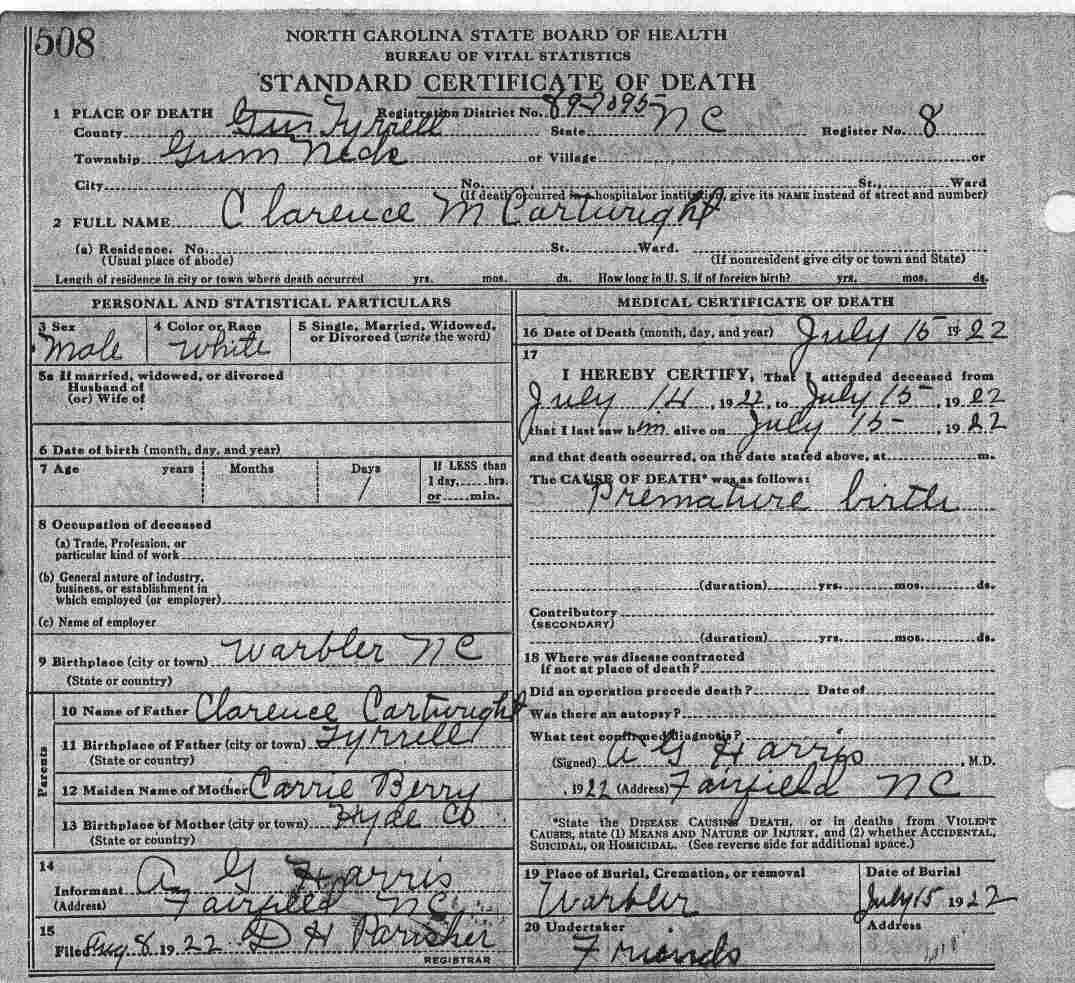 508
NORTH CAROLINA STATE BOARD OF HEALTH
BUREAU OF VITAL STATISTICS
STANDARD CERTIFICATE OF DEATH
1 PLACE OF DEATH Registration District No. 89-7095
County Tyrrell State N C Register No. 8
Township Gum Neck or Village or
City No. St., Ward
(If death occurred in a hospital or institution, give its NAME instead of street and number)
2 FULL NAME Clarence M Cartwright
(a) Residence. No. St. Ward.
(Usual place of abode) (If nonresident give city or town and State)
Length of residence in city or town where death occurred yrs. mos. ds. How long in U. S. if of foreign birth? yrs. mos. ds.
PERSONAL AND STATISTICAL PARTICULARS
3 Sex
Male
4 Color or Race
White
5 Single, Married, Widowed,
or Divorced (write the word)
5a If married, widowed, or divorced
Husband of
(or) Wife of
6 Date of birth (month, day, and year)
7 Age years Months Days
1
If LESS than
1 day,......hrs.
or......min.
8 Occupation of deceased
(a) Trade, Profession, or
particular kind of work
(b) General nature of industry,
business, or establishment in
which employed (or employer)
(c) Name of employer
9 Birthplace (city or town) Warbler N C
(State or country)
Parents
10 Name of Father Clarence Cartwright
11 Birthplace of Father (city or town) Tyrrell
(State or country)
12 Maiden Name of Mother Carrie Berry
13 Birthplace of Mother (city or town) Hyde Co
(State or country)
14
Informant A G Harris
(Address) Fairfield N C
15
Filed Aug 8 1922 D H Parisher
REGISTRAR
MEDICAL CERTIFICATE OF DEATH
16 Date of Death (month, day, and year) July 15 1922
17
I HEREBY CERTIFY, That I attended deceased from
July 14, 1922, to July 15, 1922
that I last saw him alive on July 15, 1922
and that death occurred, on the date stated above, at m.
The CAUSE OF DEATH* was as follows:
Premature birth
(duration) yrs. mos. ds.
Contributory
(SECONDARY)
(duration) yrs. mos. ds.
18 Where was disease contracted
if not at place of death?
Did an operation precede death? Date of
Was there an autopsy?
What test confirmed diagnosis?
(Signed) A G Harris, M.D.
, 1922 (Address) Fairfield N C
*State the DISEASE CAUSING DEATH, or in deaths from VIOLENT
CAUSES, state (1) MEANS AND NATURE OF INJURY, and (2) whether ACCIDENTAL,
SUICIDAL, OR HOMICIDAL. (See reverse side for additional space.)
19 Place of Burial, Cremation, or removal
Warbler
Date of Burial
July 15 1922
20 Undertaker
Friends
Address